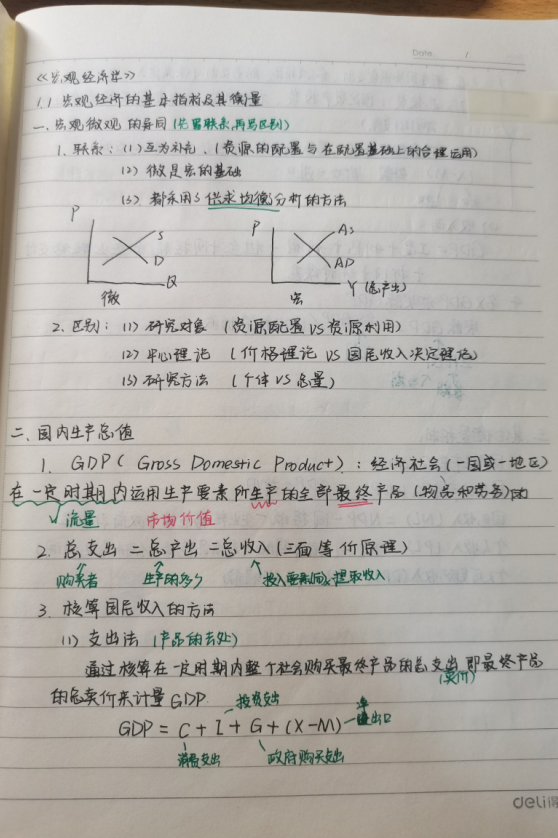 Date. /
《宏观经济学》
1.1 宏观经济的基本指标及其衡量
一、宏观微观的异同(先写联系,再写区别)
1. 联系:(1)互为补充.(资源的配置与在配置基础上的合理运用)
(2) 微是宏的基础
(3) 都采用了供求均衡分析的方法
P S D Q
微
P AS AD Y(总产出)
宏
2. 区别:(1)研究对象(资源配置 VS 资源利用)
(2)中心理论(价格理论 VS 国民收入决定理论)
(3)研究方法(个体 VS 总量)
二、国内生产总值
1. GDP( Gross Domestic Product):经济社会(一国或一地区)
在一定时期内运用生产要素所生产的全部最终产品(物品和劳务)的
流量 市场价值
2. 总支出 = 总产出 = 总收入(三面等价原理)
购买者 生产的多少 投入要素
3. 核算国民收入的方法
(1) 支出法(产品的去处)
通过核算在一定时期内整个社会购买最终产品的总支出 即最终产品
(卖价)
的总卖价来计量GDP
投资支出
GDP = C + I + G + (X-M) 净出口
消费支出 政府购买支出
deli得